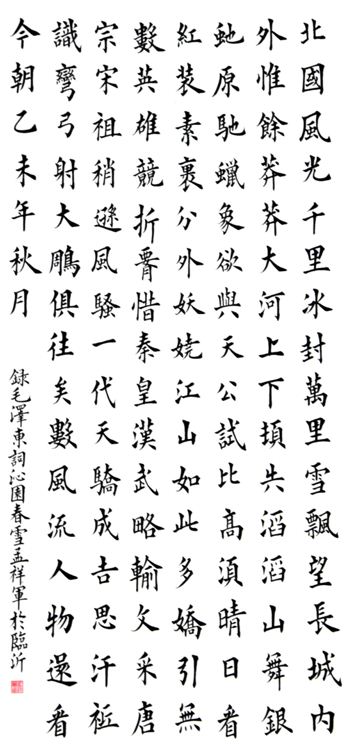 北國風光千里冰封萬里雪飄望長城内
外惟餘莽莽大河上下頓失滔滔山舞銀
虵原馳蠟象欲與天公試比高須晴日看
紅裝素裹分外妖嬈江山如此多嬌引無
數英雄競折腰惜秦皇漢武略輸文采唐
宗宋祖稍遜風騷一代天驕成吉思汗祗
識彎弓射大鵰俱往矣數風流人物還看
今朝乙未年秋月
録毛澤東詞沁園春雪孟祥軍於臨沂